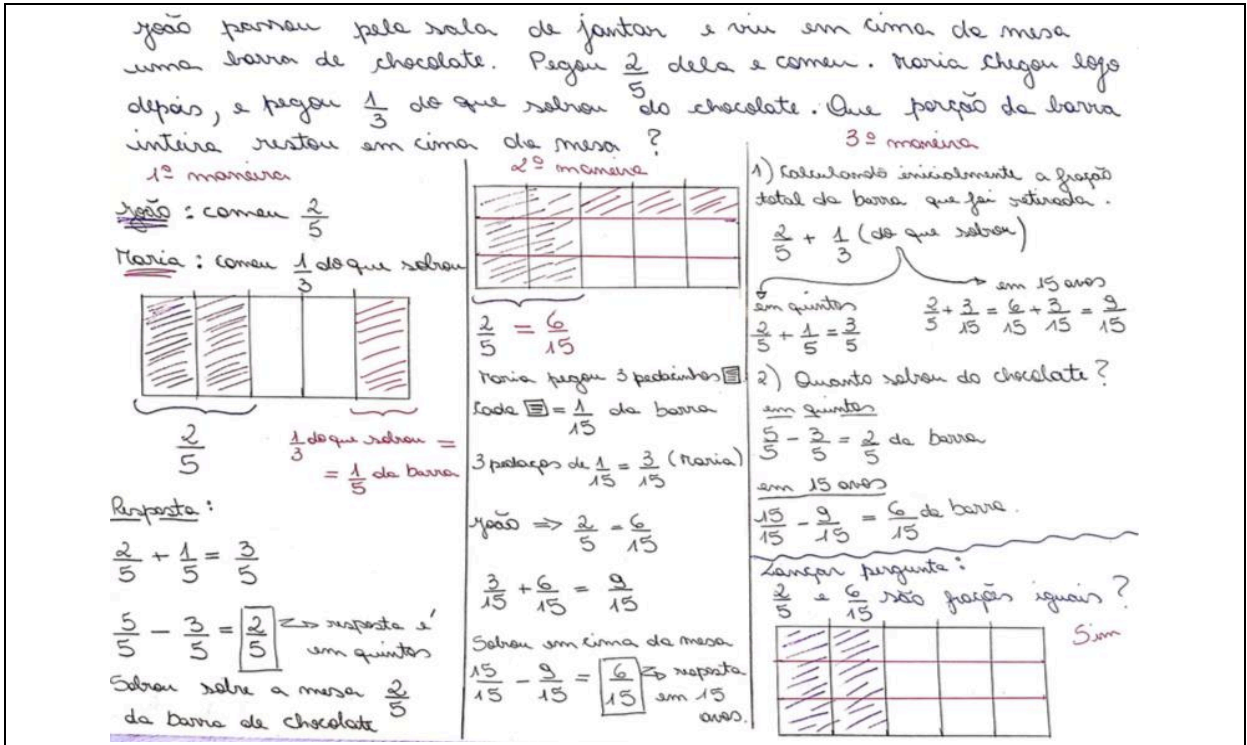 João passou pela sala de jantar e viu em cima da mesa
uma barra de chocolate. Pegou 2/5 dela e comeu. Maria chegou logo
depois, e pegou 1/3 do que sobrou do chocolate. Que porção da barra
inteira restou em cima da mesa?
1ª maneira
João: comeu 2/5
Maria: comeu 1/3 do que sobrou
2/5
1/3 do que sobrou =
= 1/5 da barra
Resposta:
2/5 + 1/5 = 3/5
5/5 - 3/5 = 2/5 => resposta é
em quintos
Sobrou sobre a mesa 2/5
da barra de chocolate
2ª maneira
2/5 = 6/15
Maria pegou 3 pedacinhos
Cada = 1/15 da barra
3 pedaços de 1/15 = 3/15 (Maria)
João => 2/5 = 6/15
3/15 + 6/15 = 9/15
Sobrou em cima da mesa
15/15 - 9/15 = 6/15 => resposta
em 15
avos.
3ª maneira
1) Calculando inicialmente a fração
total da barra que foi retirada.
2/5 + 1/3 (do que sobrou)
em quintos
2/5 + 1/5 = 3/5
em 15 avos
2/5 + 3/15 = 6/15 + 3/15 = 9/15
2) Quanto sobrou do chocolate?
em quintos
5/5 - 3/5 = 2/5 da barra
em 15 avos
15/15 - 9/15 = 6/15 da barra.
Lançar pergunta:
2/5 e 6/15 são frações iguais?
Sim